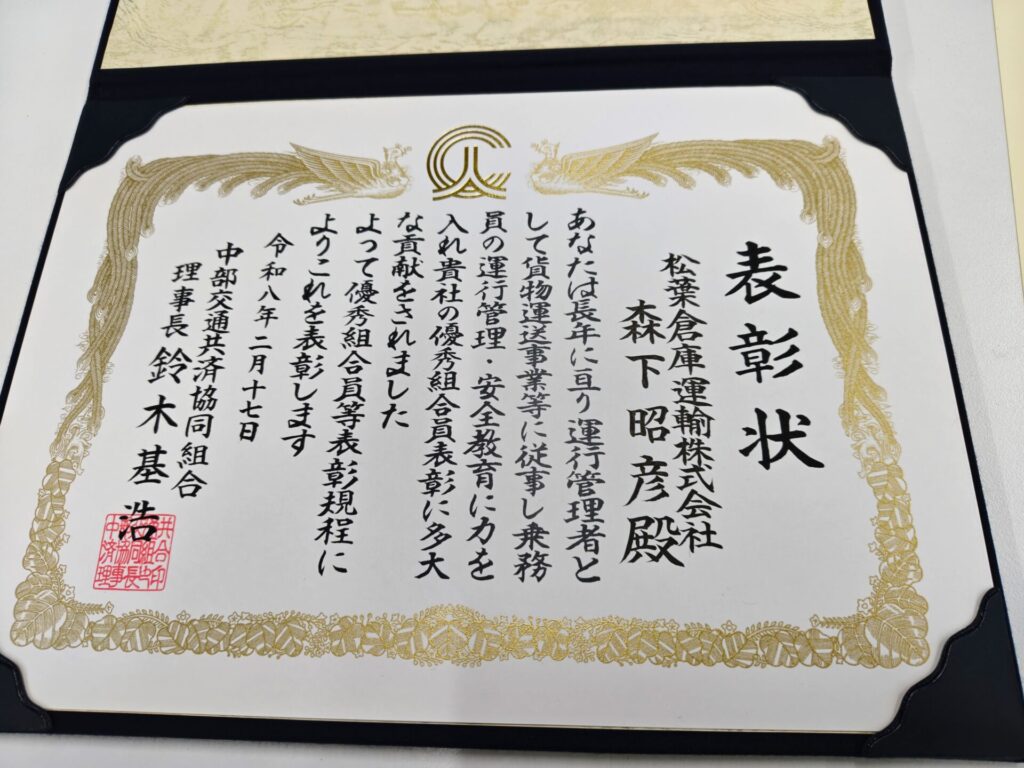 表彰状
松葉倉庫運輸株式会社
森下昭彦殿
あなたは長年に亘り運行管理者と
して貨物運送事業等に従事し乗務
員の運行管理・安全教育に力を
入れ貴社の優秀組合員表彰に多大
な貢献をされました
よって優秀組合員等表彰規程に
よりこれを表彰します
令和八年二月十七日
中部交通共済協同組合
理事長 鈴木基浩